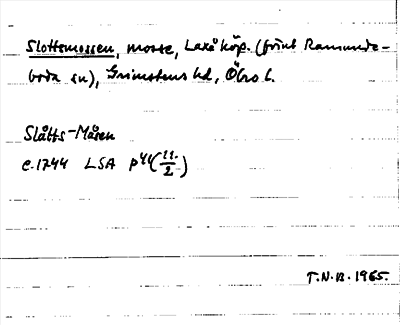 Slottsmossen, mosse, Laxå köp. (förut Ramunda-
boda sn), Grimstens hd, Öbro l.
Slåtts-Måsen
c. 1744 LSA P 41 (11/2)
T.N.B. 1965.